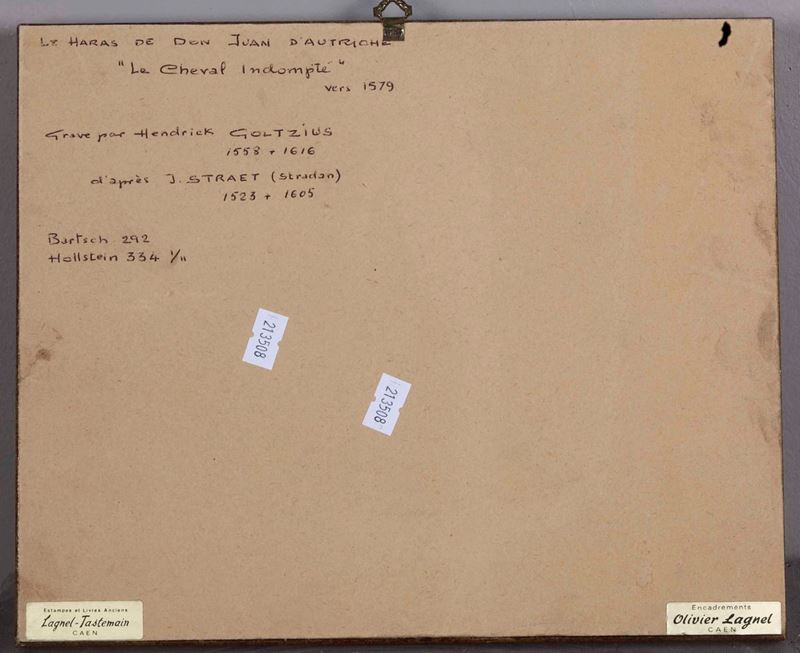 LE HARAS DE DON JUAN D'AUTRICHE
"Le Cheval Indompté"
vers 1579
Gravé par Hendrick GOLTZIUS
1558 + 1616
d'après J. STRAET (Stradan)
1523 + 1605
Bartsch 292
Hollstein 334 I/II
213508
213508
Estampes et Livres Anciens
Lagnel-Tastemain
CAEN
Encadrements
Olivier Lagnel
CAEN